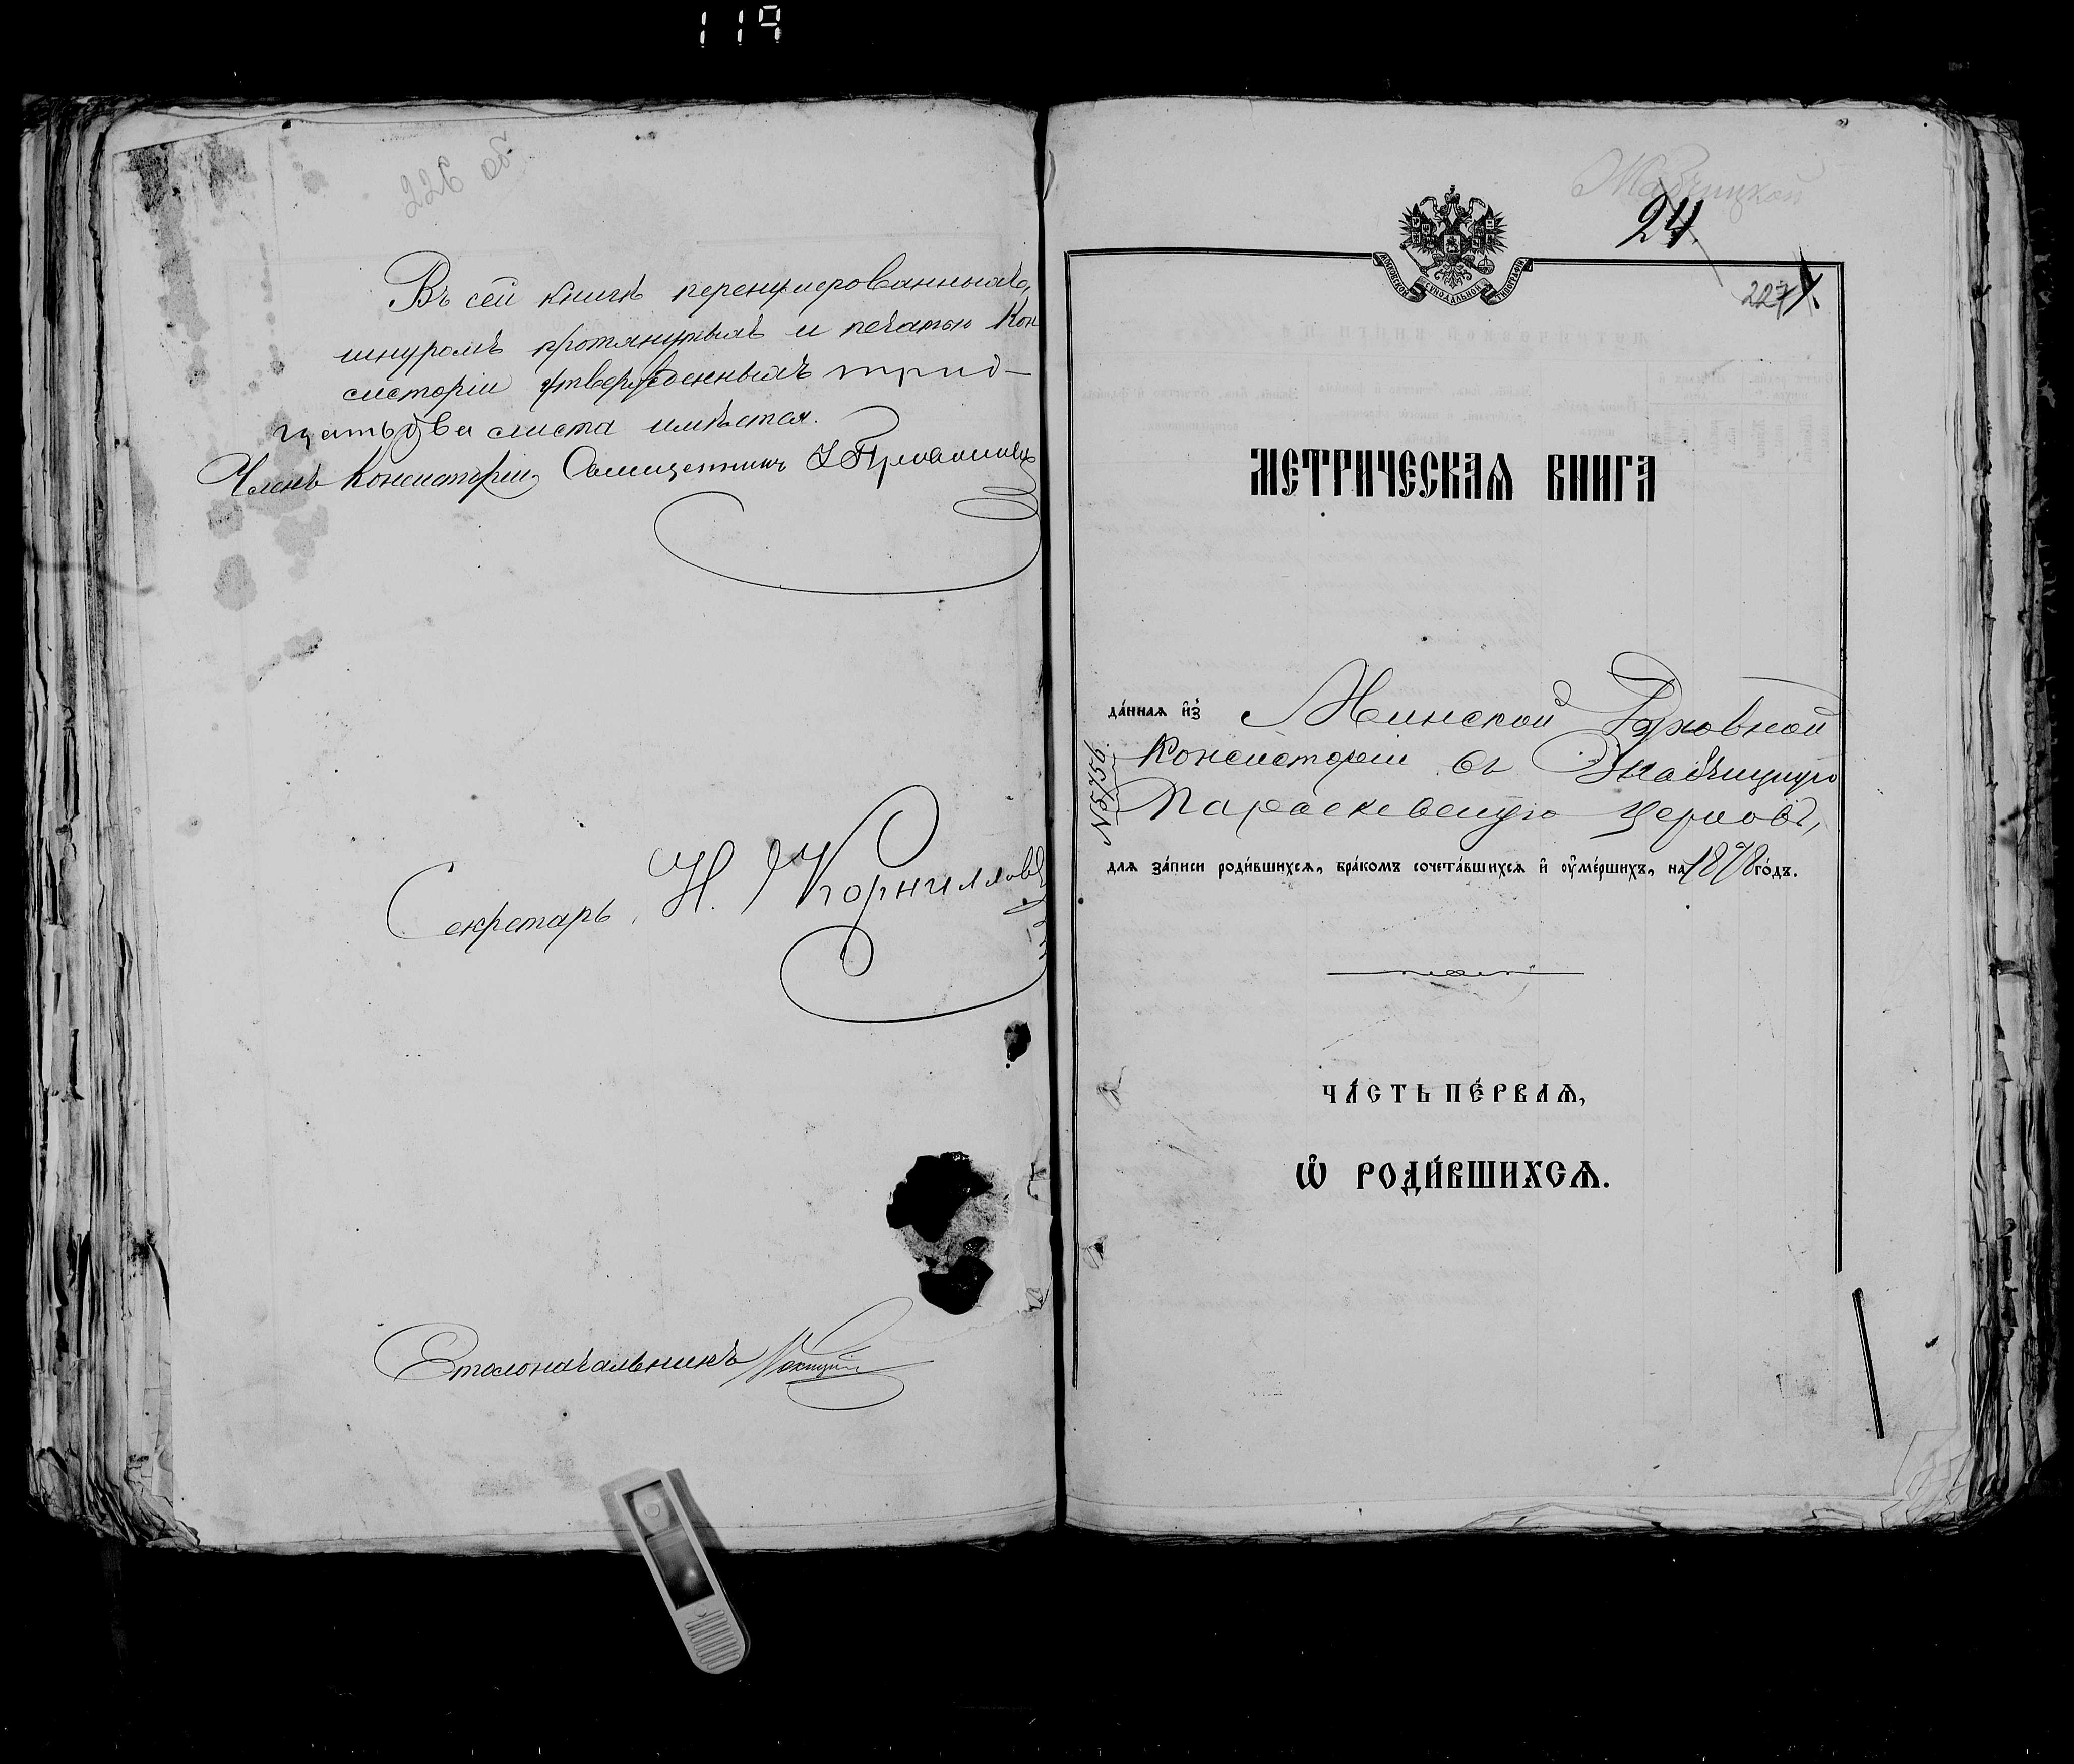 119
226 об
Въ сей книгѣ перенумерованныхъ,
шнуромъ протянутыхъ и печатью Кон
систоріи утвержденныхъ трид-
цать два листа имѣется.
Членъ Консисторіи, Священникъ
Секретарь Н. Корниловъ
Столоначальникъ
24
227
МОСКОВСКОЙ СѴНОДАЛЬНОЙ ТИПОГРАФІИ
МЕТРИЧЕСКАѦ КНИГА
да́ннаѧ и҆з̾ Минской Духовной
Консисторіи въ
Параскевскую церковь,
№ 5756.
длѧ за́писи роди́вшихсѧ, бра́комъ сочета́вшихсѧ и҆ ѹ҆ме́ршихъ, на 1878 го́дъ.
ЧА́СТЬ ПЕ́РВАѦ,
Ѽ РОДИ́ВШИХСѦ.